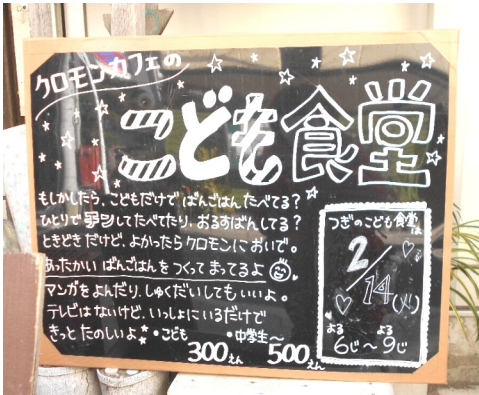 クロモンカフェの
こども食堂
もしかしたら、こどもだけで ばんごはん たべてる?
ひとりで チンしてたべてたり、おるすばんしてる?
ときどきだけど、よかったらクロモンにおいで。
あったかい ばんごはんを つくって まってるよ
マンガをよんだり、しゅくだいしてもいいよ。
テレビはないけど、いっしょにいるだけで
きっと たのしいよ
・こども 300えん
・中学生～ 500えん
つぎのこども食堂は
2/14(火)
よる よる
6じ～9じ